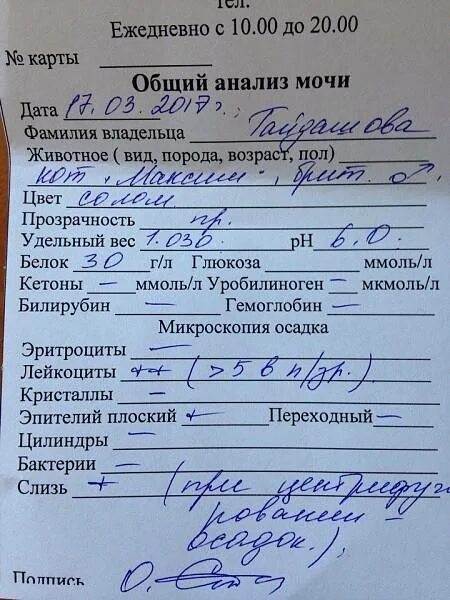 тел.
Ежедневно с 10.00 до 20.00
№ карты
Общий анализ мочи
Дата 17.03.2017г.
Фамилия владельца Гайдашова
Животное ( вид, порода, возраст, пол)
кот "Максим", брит. ♂.
Цвет солом
Прозрачность пр.
Удельный вес 1.030 pH 6.0
Белок 30 г/л Глюкоза ммоль/л
Кетоны — ммоль/л Уробилиноген — мкмоль/л
Билирубин — Гемоглобин —
Микроскопия осадка
Эритроциты —
Лейкоциты ++ (>5 в п/зр.)
Кристаллы —
Эпителий плоский + Переходный —
Цилиндры —
Бактерии —
Слизь + (при центрифуги
ровании –
осадок.)
Подпись